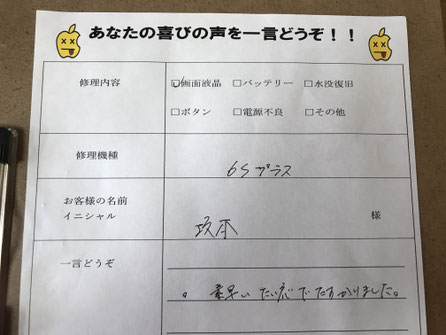 あなたの喜びの声を一言どうぞ！！
修理内容
☑画面液晶 □バッテリー □水没復旧
□ボタン □電源不良 □その他
修理機種
6Sプラス
お客様の名前
イニシャル
坂本 様
一言どうぞ
。素早いたい応でたすかりました。